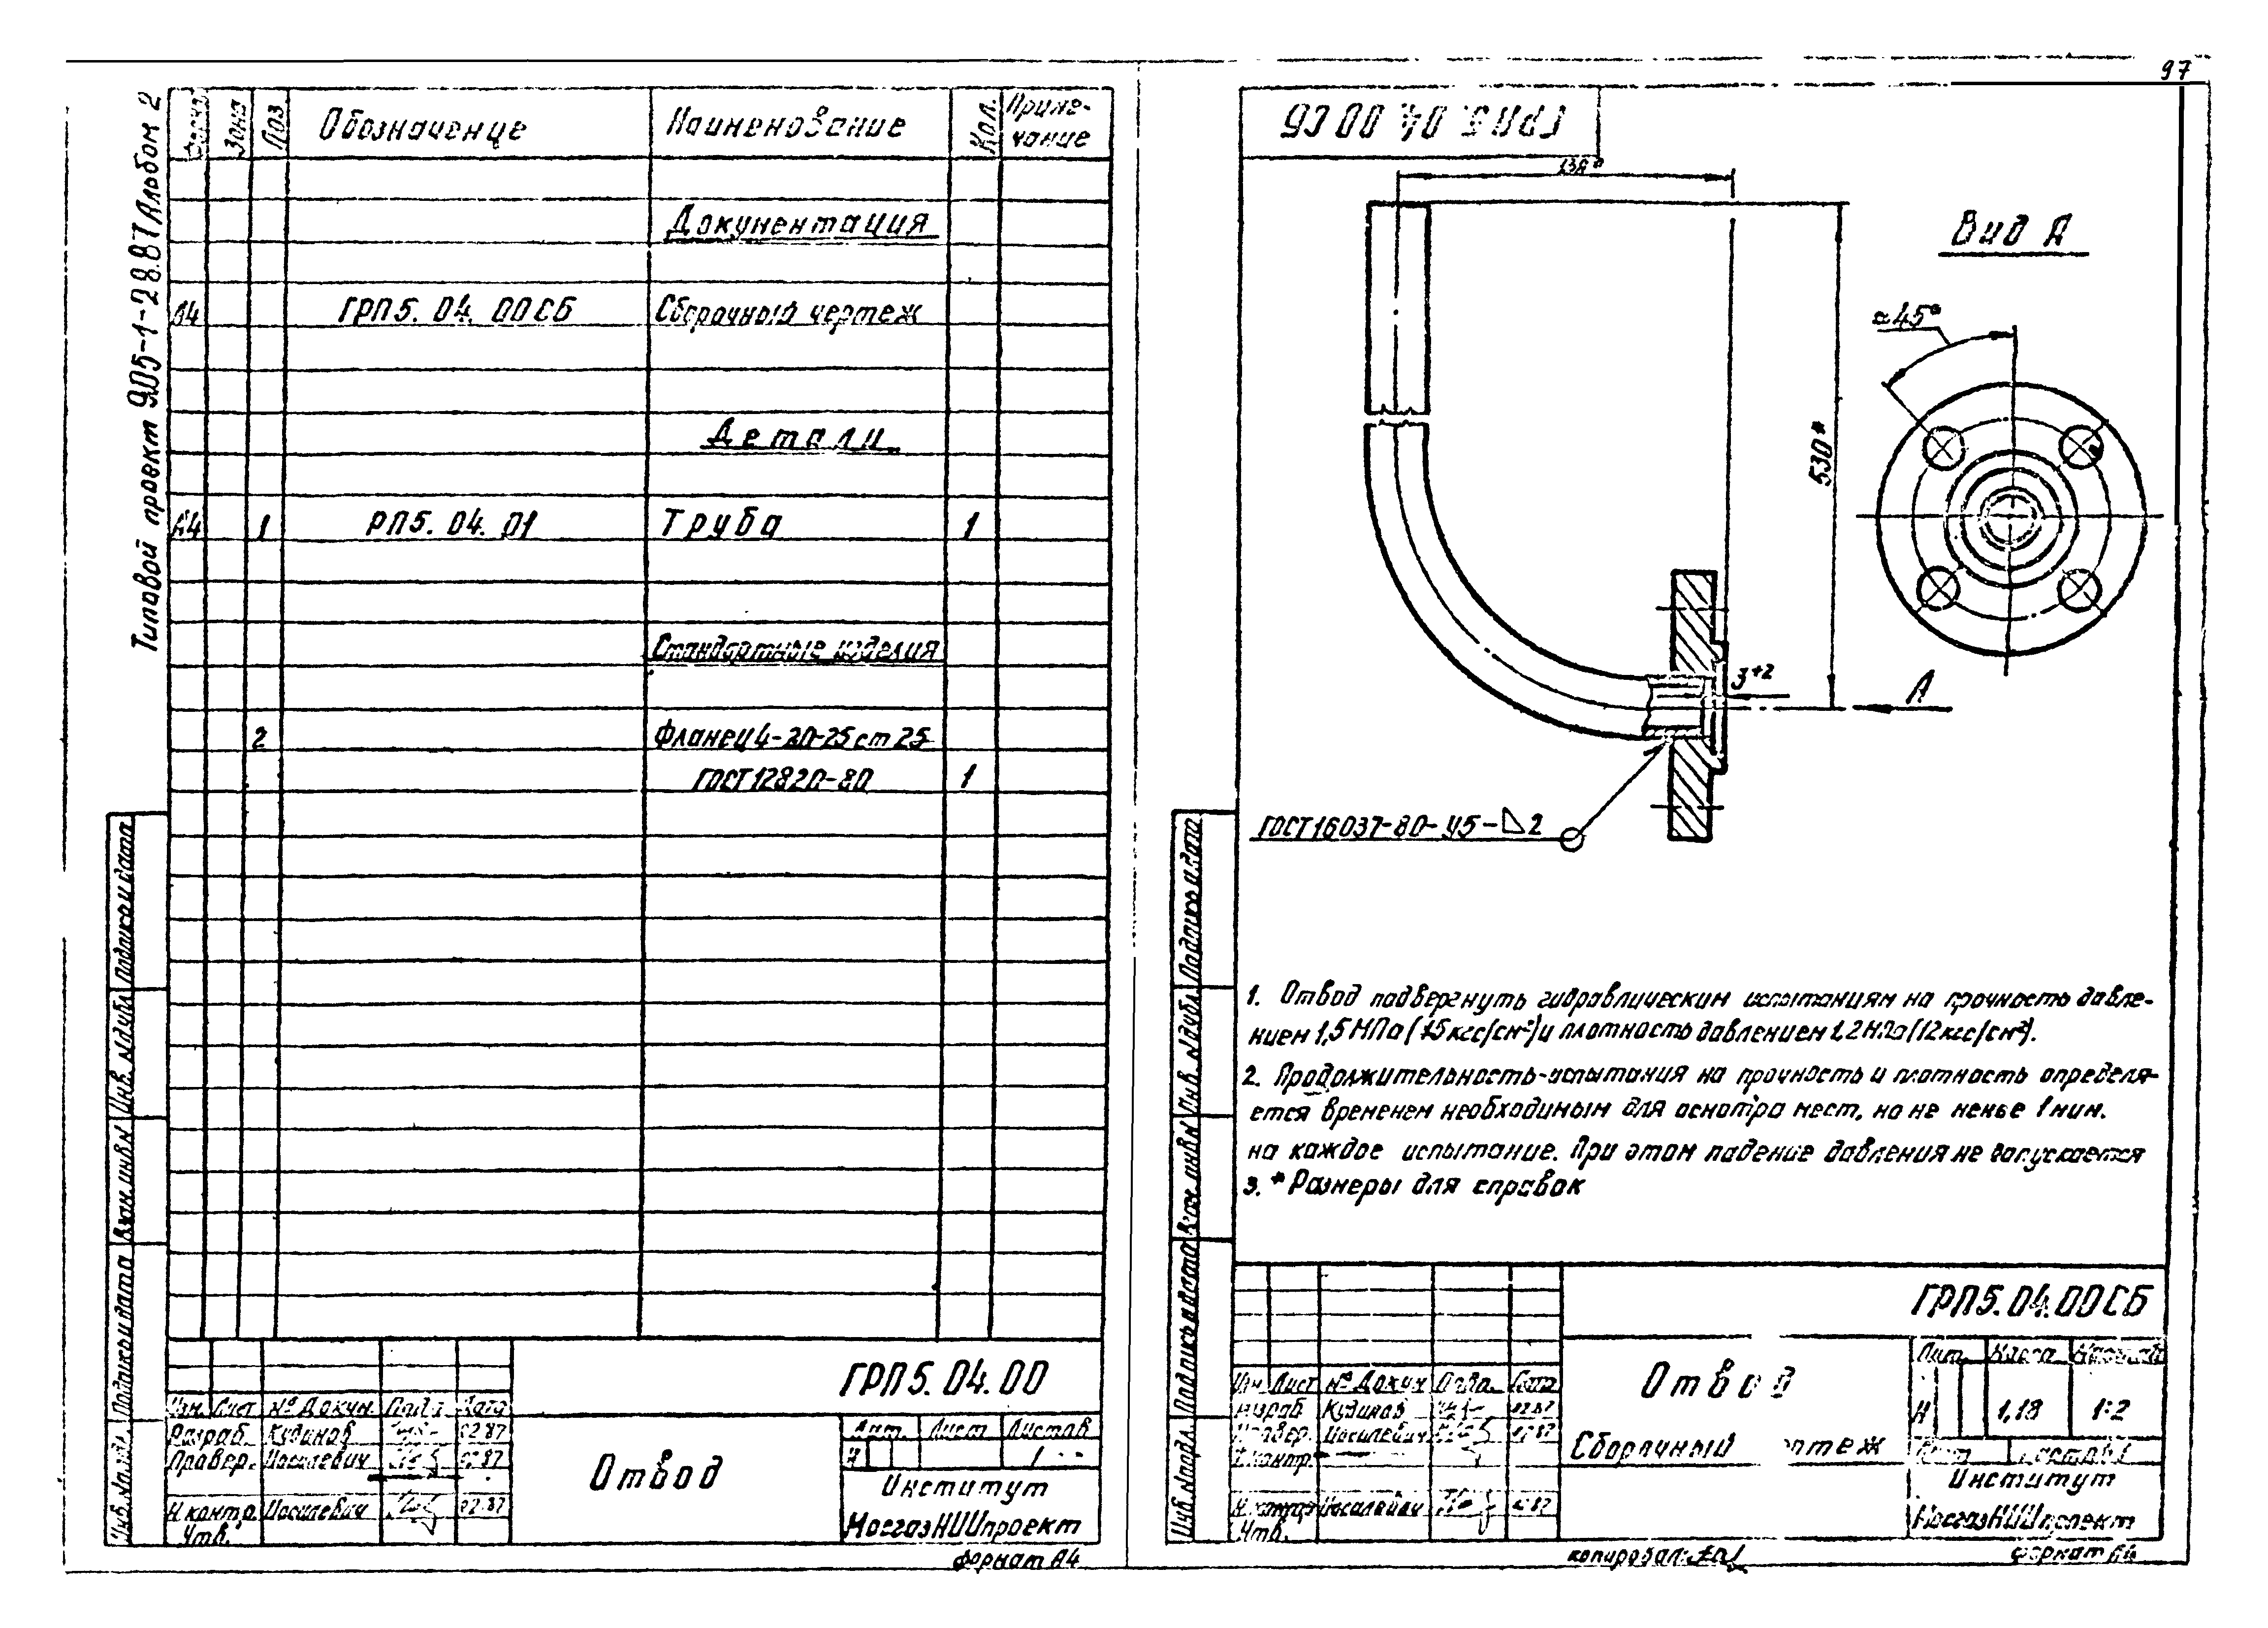 97
Типовой проект 905-1-28.87 Альбом 2
Зона
Поз
Обозначение
Наименование
Кол.
Приме-
чание
Документация
А4 ГРП5. 04. 00 СБ Сборочный чертеж
Детали
А4 1 РП5. 04. 01 Труба 1
Стандартные изделия
2 Фланец 4-20-25 ст 25
ГОСТ 12820-80 1
Подпись и дата
Инв. № дубл.
Взам. инв №
Подпись и дата
Инв. № подл.
ГРП5. 04. 00
Изм. Лист № Докум. Подп. Дата
Разраб. Кудинов 02.87
Провер. Иосилевич 02.87
Н.контр. Иосилевич 02.87
Утв.
Отвод
Лит. Лист Листов
И 1
Институт
МосгазНИИпроект
формат А4
ГРП5. 04. 00 СБ
138*
Вид А
≈45°
530*
3+2
А
ГОСТ 16037-80-У5-◺2
1. Отвод подвергнуть гидравлическим испытаниям на прочность давле-
нием 1,5 МПа (15 кгс/см²) и плотность давлением 1,2 МПа (12 кгс/см²).
2. Продолжительность испытания на прочность и плотность определя-
ется временем необходимым для осмотра мест, но не менее 1 мин.
на каждое испытание. При этом падение давления не допускается
3. * Размеры для справок
Подпись и дата
Инв. № дубл.
Взам. инв №
Подпись и дата
Инв. № подл.
ГРП5.04.00СБ
Изм. Лист № Докум Подп. Дата
Разраб Кудинов 02.87
Провер. Иосилевич 02.87
Т.контр.
Н.контр Иосилевич 02.87
Утв.
Отвод
Сборочный ртеж
Лит. Масса Масштаб
И 1,18 1:2
Лист Листов 1
Институт
МосгазНИИпроект
копировал:
формат А4